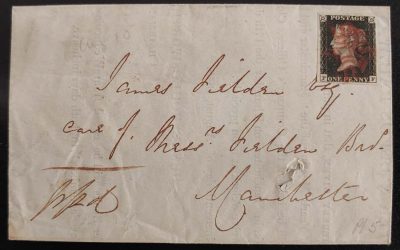 POSTAGE
ONE PENNY
James Fielden Esq.
care of Messrs Fielden Bros.
Manchester
ppd